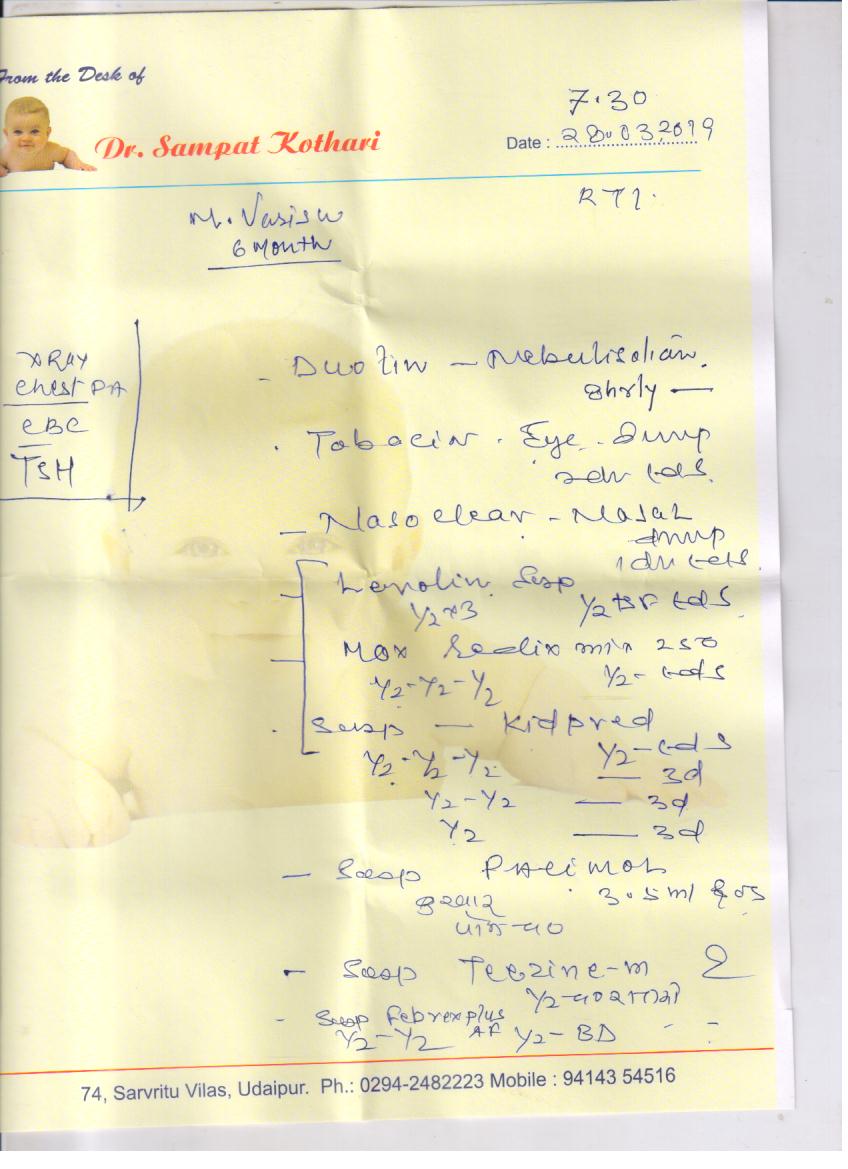 From the Desk of
Dr. Sampat Kothari
7.30
Date : 28.03.2019
RTI.
M.
6 Month
X RAY
Chest PA
CBC
TSH
- Duolin - Nebulisation.
8hrly —
. Tobacin . Eye . Drop
tds.
- Nasoclear - Nasal
drop
tds.
Susp
½ x 3 ½ tsf tds.
Mox 250
½-½-½ ½- tds
. Susp — Kidpred
½-½-½ ½-tds
— 3d
½-½ — 3d
½ — 3d
- Susp Pacimol
3.5ml
- Susp Teczine-M
½-
- Susp Febrexplus
½-½ AF ½-BD
74, Sarvritu Vilas, Udaipur. Ph.: 0294-2482223 Mobile : 94143 54516